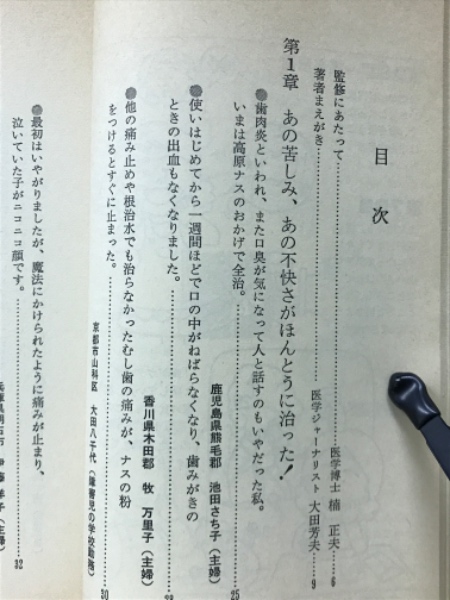 目次
監修にあたって……医学博士 楠 正夫…6
著者まえがき……医学ジャーナリスト 大田芳夫…9
第1章 あの苦しみ、あの不快さがほんとうに治った!
●歯肉炎といわれ、また口臭が気になって人と話すのもいやだった私。
いまは高原ナスのおかげで全治。……25
鹿児島県熊毛郡 池田さち子(主婦)
●使いはじめてから一週間ほどで口の中がねばらなくなり、歯みがきの
ときの出血もなくなりました。……28
香川県木田郡 牧 万里子(主婦)
●他の痛み止めや根治水でも治らなかったむし歯の痛みが、ナスの粉
をつけるとすぐに止まった。……30
京都市山科区 大田八千代(障害児の学校勤務)
●最初はいやがりましたが、魔法にかけられたように痛みが止まり、
泣いていた子がニコニコ顔です。……32
兵庫県明石市 伊藤洋子(主婦)